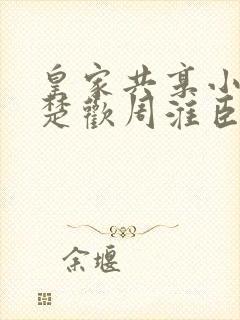 皇家共享小
楚歡周淮臣
余堰